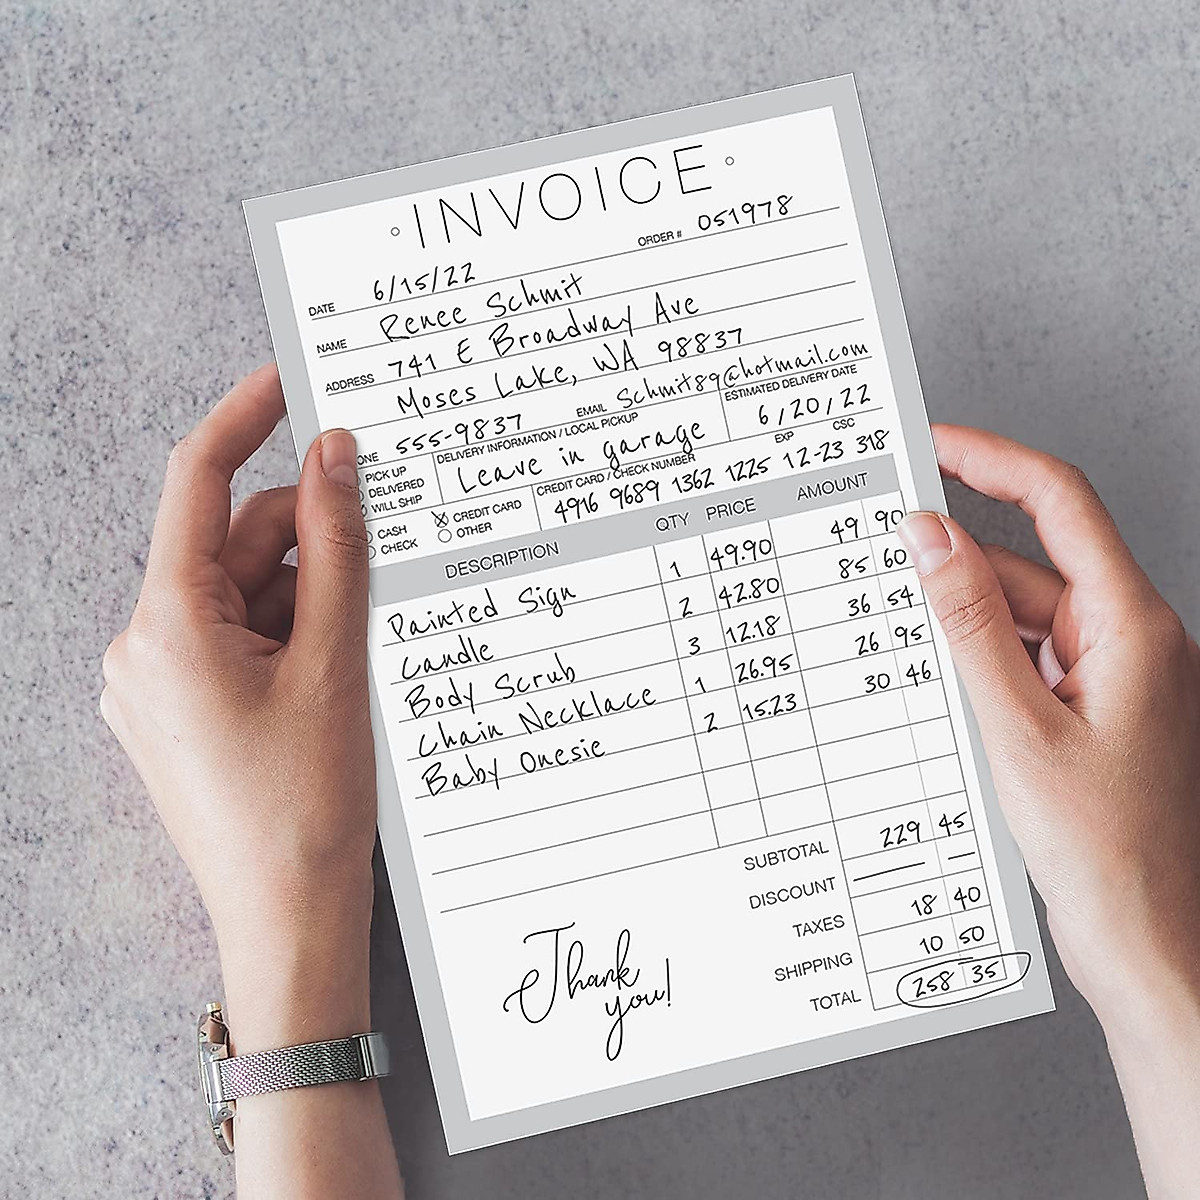 INVOICE
ORDER # 051978
DATE 6/15/22
NAME Renee Schmit
ADDRESS 741 E Broadway Ave
Moses Lake, WA 98837
ONE 555-9837 EMAIL Schmit89@hotmail.com
PICK UP
DELIVERED
WILL SHIP
DELIVERY INFORMATION / LOCAL PICKUP
Leave in garage
ESTIMATED DELIVERY DATE
6/20/22
CASH
CHECK
CREDIT CARD
OTHER
CREDIT CARD / CHECK NUMBER EXP CSC
4916 9689 1362 1225 12-23 318
DESCRIPTION QTY PRICE AMOUNT
Painted Sign 1 49.90 49 90
Candle 2 42.80 85 60
Body Scrub 3 12.18 36 54
Chain Necklace 1 26.95 26 95
Baby Onesie 2 15.23 30 46
SUBTOTAL 229 45
DISCOUNT — —
TAXES 18 40
SHIPPING 10 50
TOTAL 258 35
Thank
you!